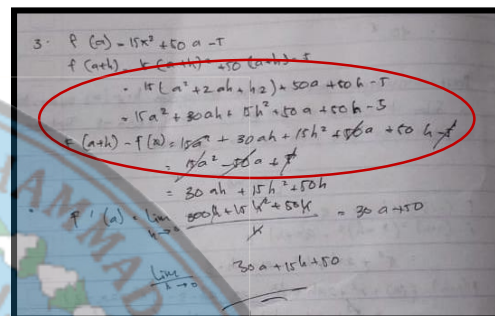 3. f(a) = 15x² + 50a - 5
f(a+h) = 15(a+h)² + 50(a+h) - 5
= 15(a² + 2ah + h2) + 50a + 50h - 5
= 15a² + 30ah + 15h² + 50a + 50h - 5
f(a+h) - f(x) = 15a² + 30ah + 15h² + 50a + 50h - 5
= 15a² - 50a + 5
= 30ah + 15h² + 50h
f'(a) = lim h→0 300h + 15h² + 50h / h = 30a + 50
lim h→0 30a + 15h + 50
HAMMAD